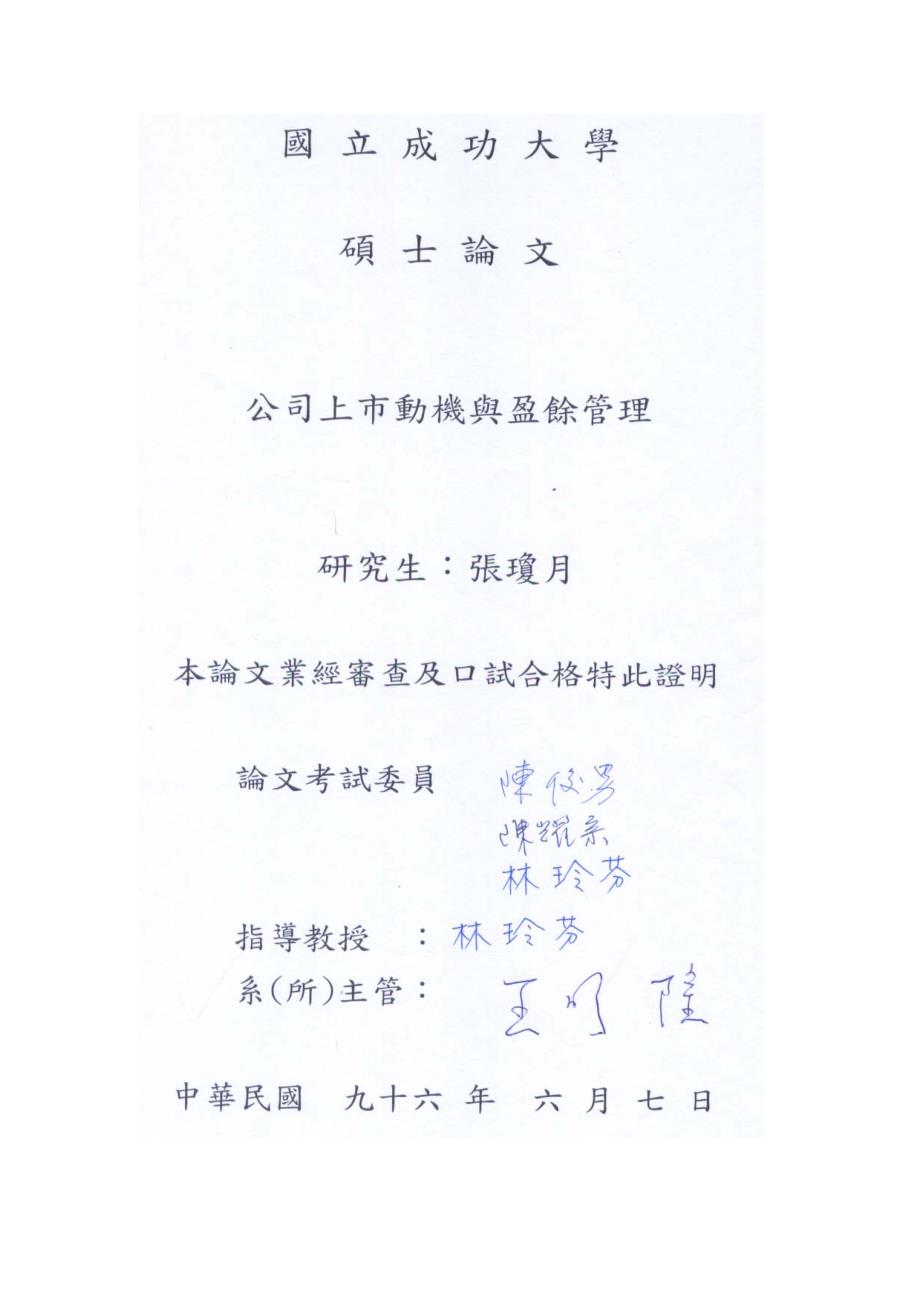 國立成功大學
碩士論文
公司上市動機與盈餘管理
研究生：張瓊月
本論文業經審查及口試合格特此證明
論文考試委員 陳俊男
陳耀宗
林玲芬
指導教授 ：林玲芬
系(所)主管：王明隆
中華民國 九十六 年 六 月 七 日